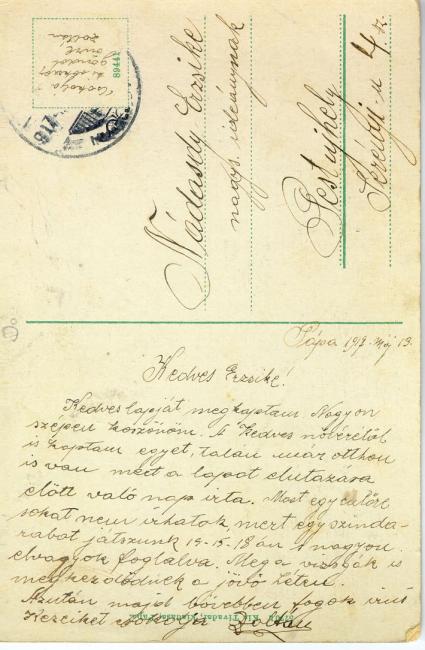 Nádasdy Erzsike
nagys. úrleánynak
Pestujhely
u 4 sz.
89441
Csokolja
sokszor
Zoltán
Pápa 1918. Máj 13.
Kedves Erzsike!
Kedves lapját megkaptam. Nagyon
szépen köszönöm. A kedves nővérétől
is kaptam egyet, talán már otthon
is van mert a lapot elutazása
előtt való nap irta. Most egyenlőre
sokat nem irhatok, mert egy szinda-
rabot játszunk 14-15-18án s nagyon
elvagyok foglalva. Meg a vizsgák is
megkezdődnek a jövő héten.
Azután majd bővebben fogok irni
Kezeiket csókolja Zoltán
Kis Tivadar, kiadása, Pápa.